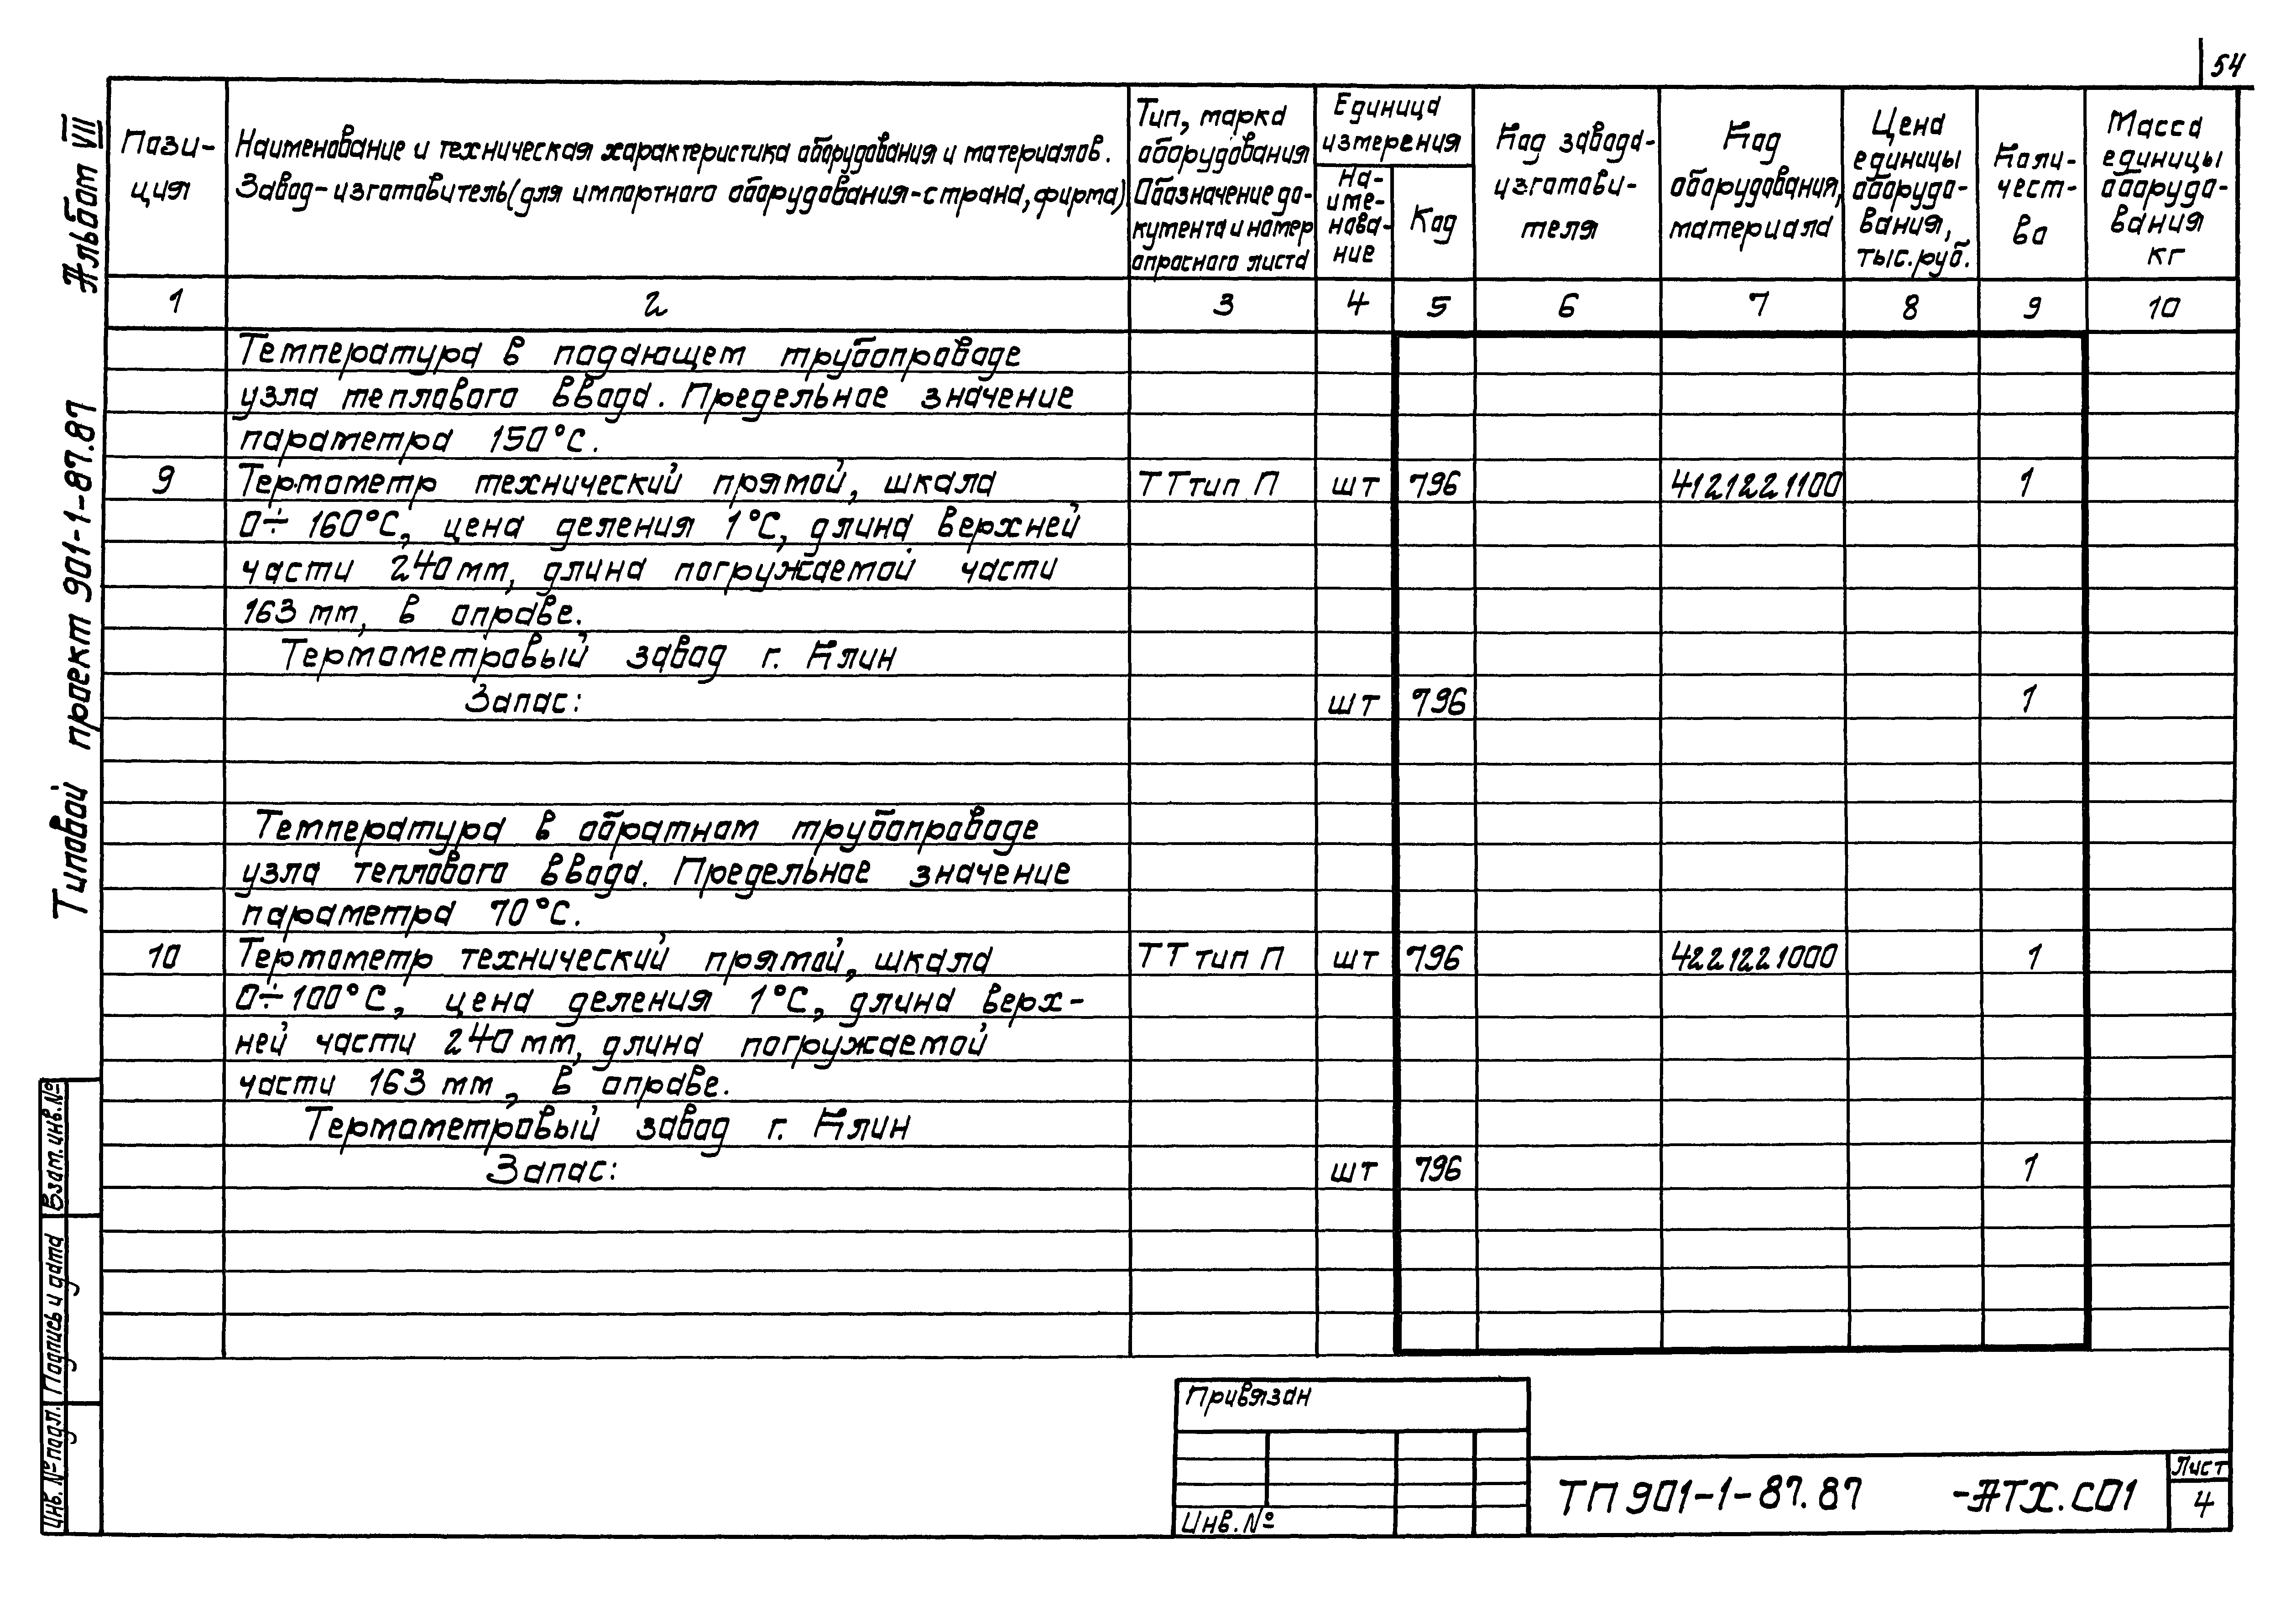 54
Альбом VII
Типовой проект 901-1-87.87
Пози-
ция
Наименование и техническая характеристика оборудования и материалов.
Завод-изготовитель (для импортного оборудования-страна, фирма)
Тип, марка
оборудования
Обозначение до-
кумента и номер
опросного листа
Единица
измерения
На-
име-
нова-
ние
Код
Код завода-
изготови-
теля
Код
оборудования,
материала
Цена
единицы
оборудо-
вания,
тыс.руб.
Коли-
чест-
во
Масса
единицы
оборудо-
вания
кг
1 2 3 4 5 6 7 8 9 10
Температура в подающем трубопроводе
узла теплового ввода. Предельное значение
параметра 150°С.
9 Термометр технический прямой, шкала ТТ тип П шт 796 4121221100 1
0÷160°С, цена деления 1°С, длина верхней
части 240 мм, длина погружаемой части
163 мм, в оправе.
Термометровый завод г. Клин
Запас: шт 796 1
Температура в обратном трубопроводе
узла теплового ввода. Предельное значение
параметра 70°С.
10 Термометр технический прямой, шкала ТТ тип П шт 796 4221221000 1
0÷100°С, цена деления 1°С, длина верх-
ней части 240 мм, длина погружаемой
части 163 мм, в оправе.
Термометровый завод г. Клин
Запас: шт 796 1
Взам.инв.№
Подпись и дата
Инв. № подл.
Привязан
Инв.№
ТП 901-1-87.87 -АТХ.СО1
Лист
4